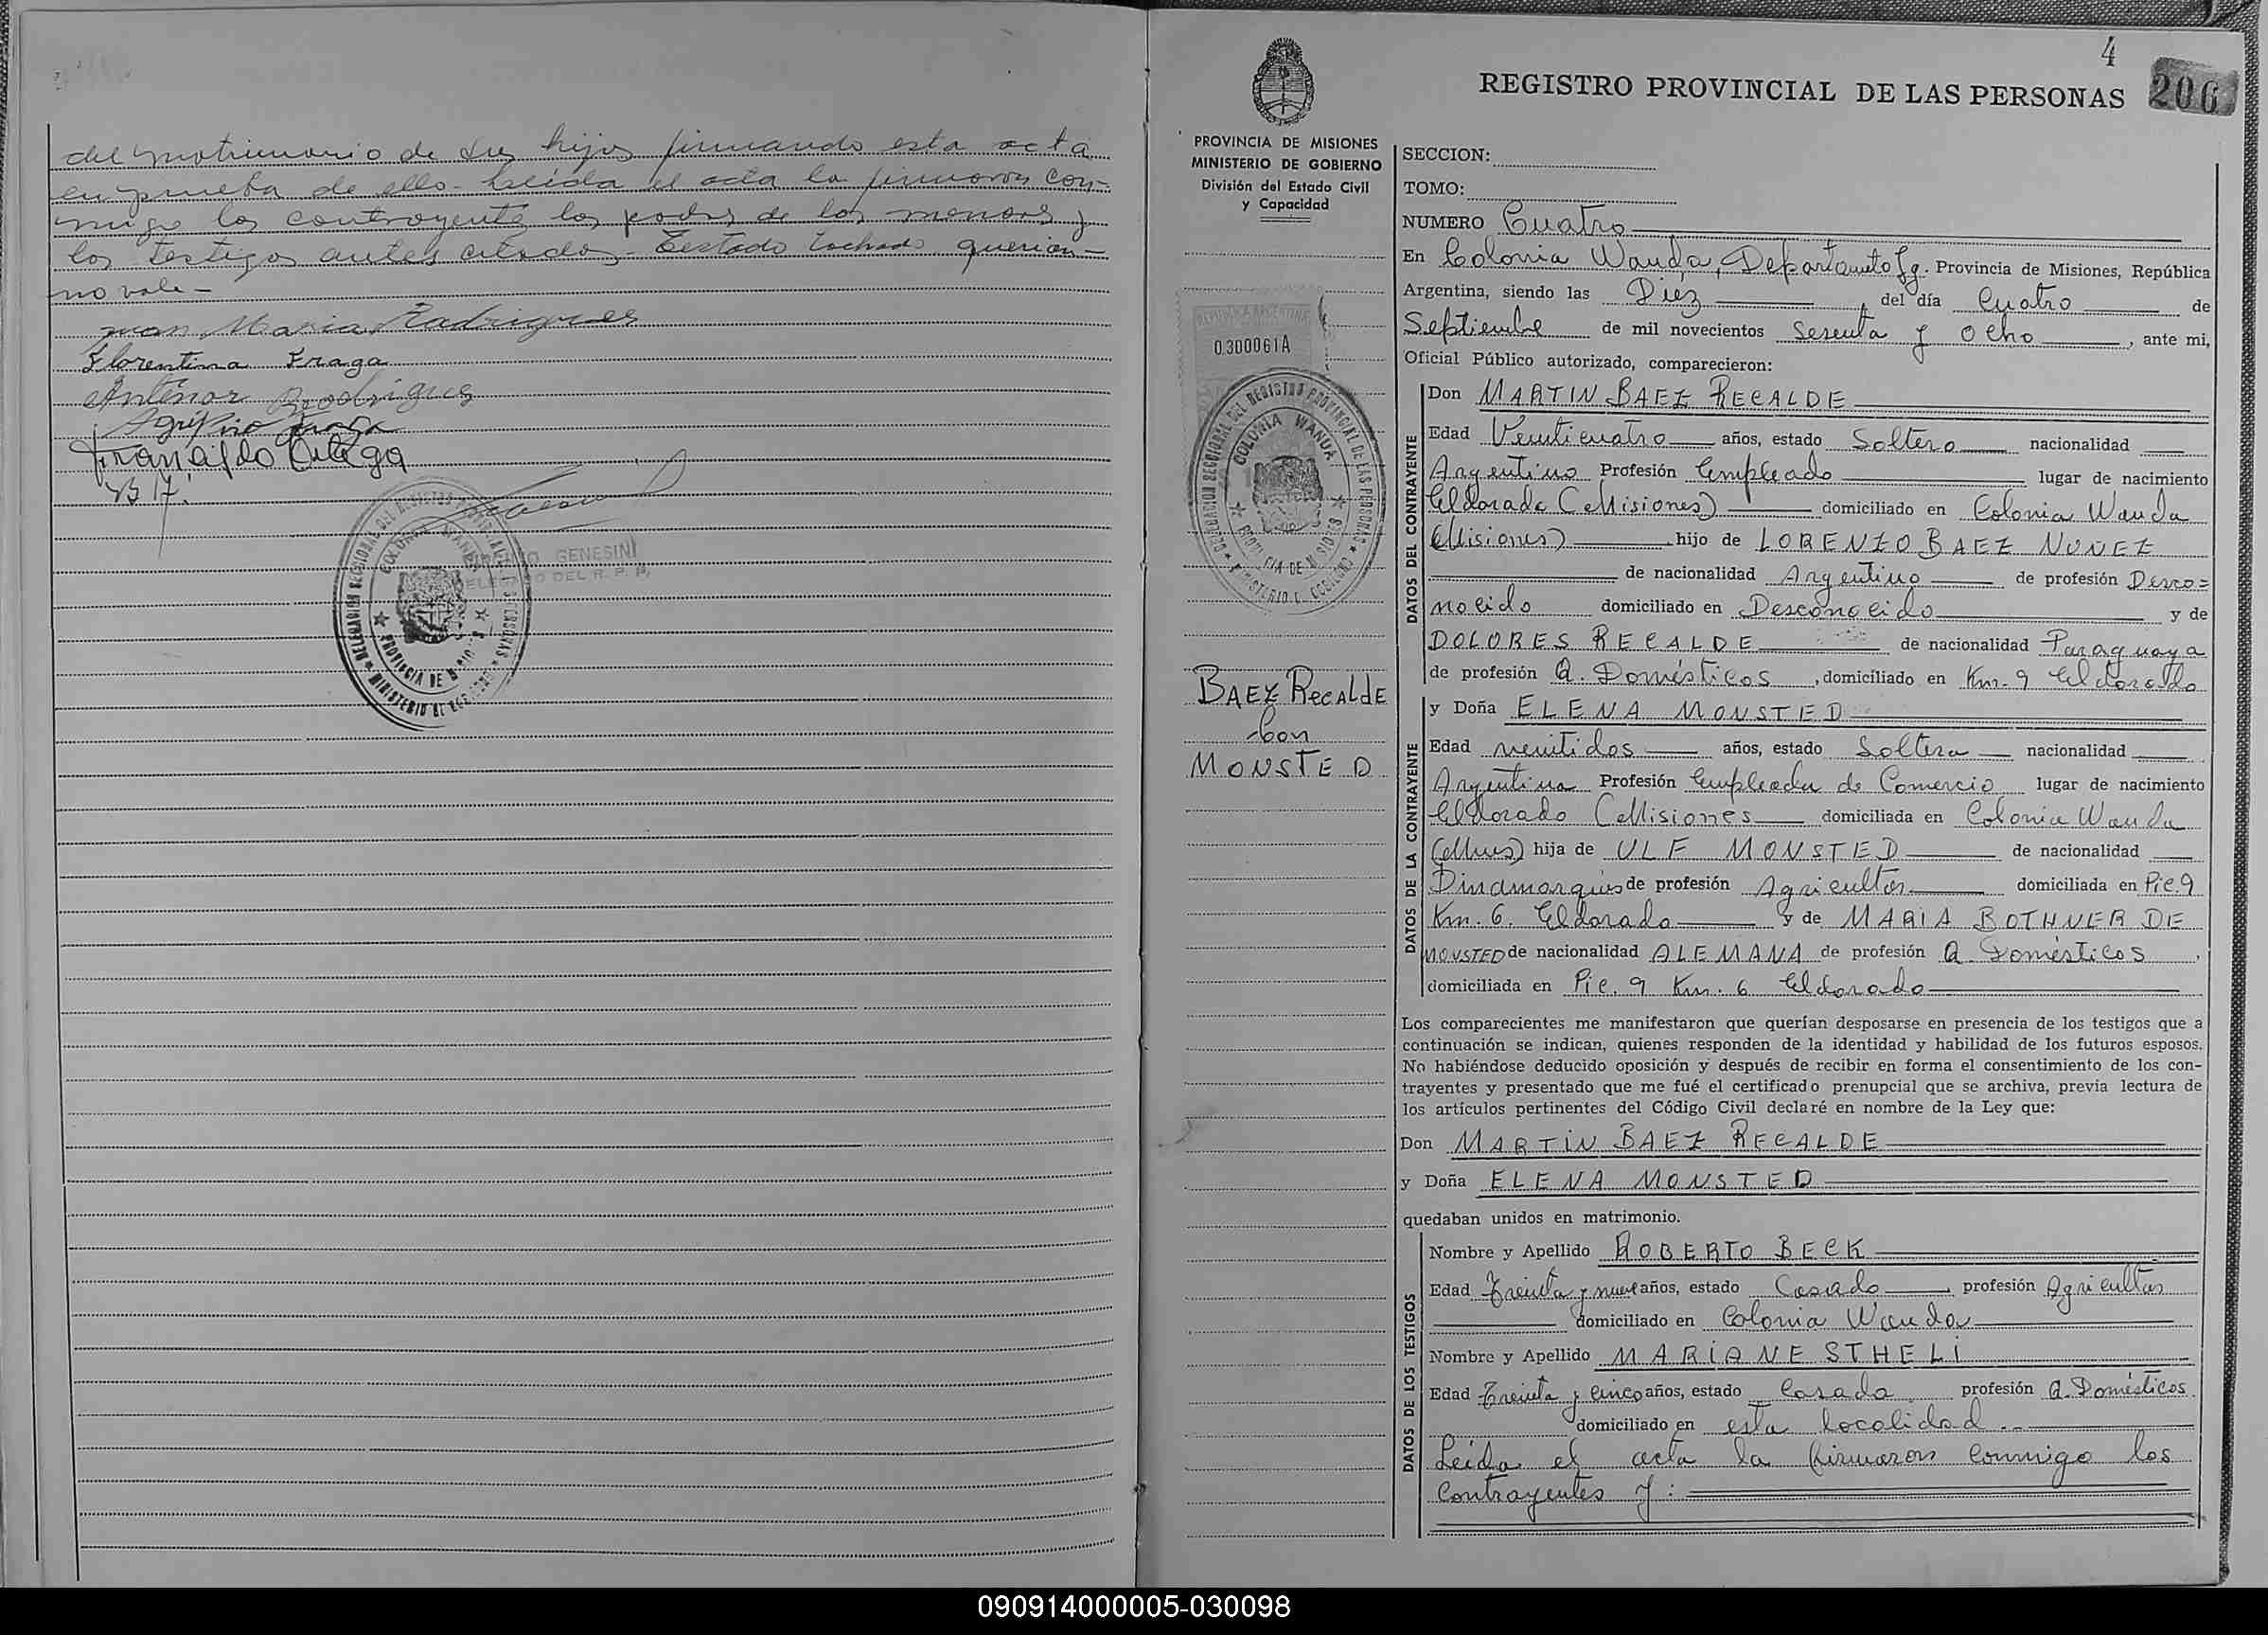 del matrimonio de sus hijos firmando esta acta
en prueba de ello - Leida el acta la firmaron con-
migo los contrayentes los padres de los menores y
los testigos antes citados - Testado tachado querian -
no vale -
Juan Maria Rodrigues
Florentina Fraga
Antenor Rodrigues
Agripino Fraga
Ortega
GENESINI
DELEGADO DEL R. P. P.
COLONIA WANDA
PROVINCIA DE MISIONES
4
REGISTRO PROVINCIAL DE LAS PERSONAS
206
PROVINCIA DE MISIONES
MINISTERIO DE GOBIERNO
División del Estado Civil
y Capacidad
REPUBLICA ARGENTINA
0.300061A
DELEGACION SECCIONAL DEL REGISTRO PROVINCIAL DE LAS PERSONAS
COLONIA WANDA
PROVINCIA DE MISIONES
BAEZ RecALdE
Con
MONSTED
SECCION:
TOMO:
NUMERO Cuatro
En Colonia Wanda, Departamento Yg. Provincia de Misiones, República
Argentina, siendo las Diez, del día Cuatro de
Septiembre de mil novecientos Sesenta y Ocho, ante mi,
Oficial Público autorizado, comparecieron:
DATOS DEL CONTRAYENTE
Don MARTIN BAEZ RECALDE
Edad Veinticuatro años, estado Soltero nacionalidad
Argentino Profesión Empleado lugar de nacimiento
Eldorado (Misiones) domiciliado en Colonia Wanda
(Misiones), hijo de LORENZO BAEZ NUÑEZ
de nacionalidad Argentino de profesión Desco=
nocido domiciliado en Desconocido y de
DOLORES RECALDE de nacionalidad Paraguaya
de profesión Q. Domésticos, domiciliado en Km. 9 Eldorado
DATOS DE LA CONTRAYENTE
y Doña ELENA MONSTED
Edad veintidos años, estado Soltera nacionalidad
Argentina Profesión Empleada de Comercio lugar de nacimiento
Eldorado (Misiones domiciliada en Colonia Wanda
(Mnes) hija de ULF MONSTED de nacionalidad
Dinamarques de profesión Agricultor domiciliada en Pic. 9
Km. 6. Eldorado y de MARIA BOTHNER DE
MONSTED de nacionalidad ALEMANA de profesión Q. Domésticos,
domiciliada en Pic. 9 Km. 6 Eldorado
Los comparecientes me manifestaron que querían desposarse en presencia de los testigos que a
continuación se indican, quienes responden de la identidad y habilidad de los futuros esposos.
No habiéndose deducido oposición y después de recibir en forma el consentimiento de los con-
trayentes y presentado que me fué el certificado prenupcial que se archiva, previa lectura de
los artículos pertinentes del Código Civil declaré en nombre de la Ley que:
Don MARTIN BAEZ RECALDE
y Doña ELENA MONSTED
quedaban unidos en matrimonio.
DATOS DE LOS TESTIGOS
Nombre y Apellido ROBERTO BECK
Edad Treinta y nueve años, estado Casado, profesión Agricultor
domiciliado en Colonia Wanda
Nombre y Apellido MARIANE STHELI
Edad Treinta y Cinco años, estado Casada profesión Q. Domésticos
domiciliado en esta localidad
Leida el acta la firmaron conmigo los
Contrayentes y:
090914000005-030098